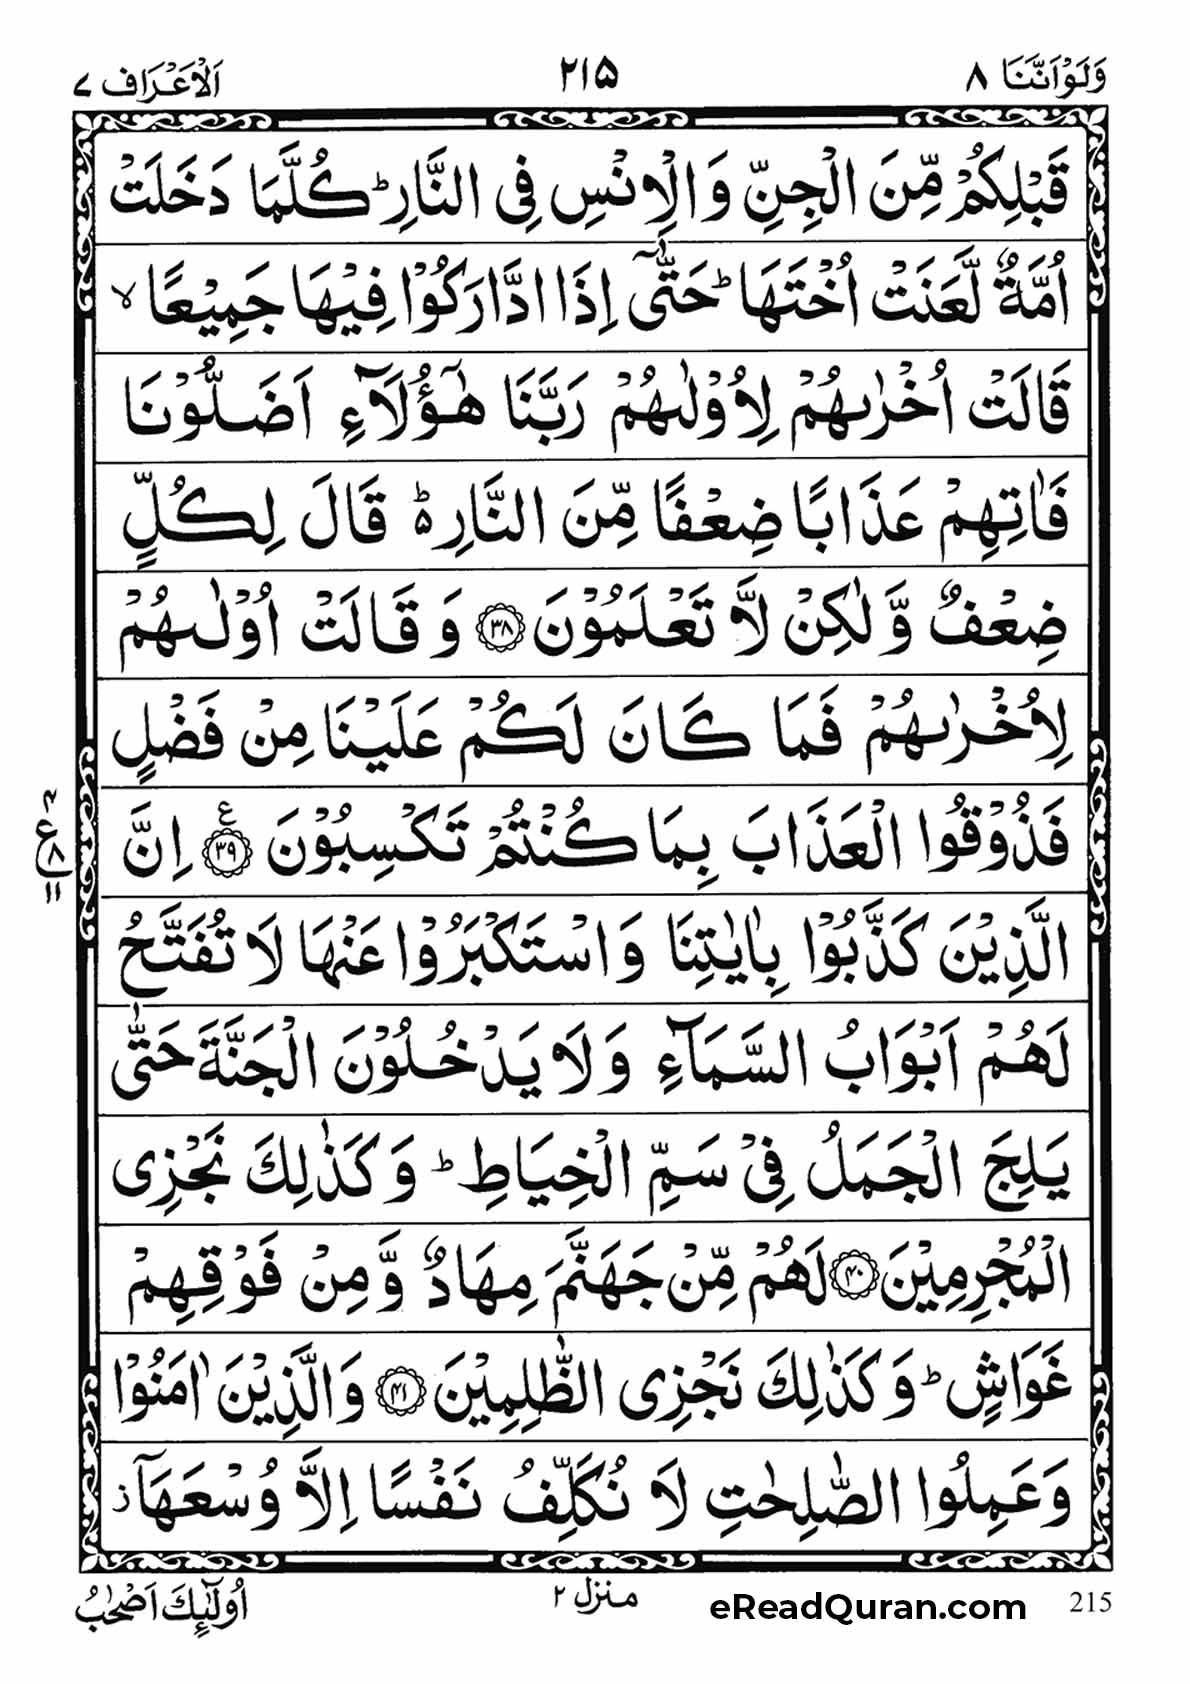 وَلَوْاَنَّنَا ٨
٢١٥
اَلْاَعْرَاف ٧
قَبْلِكُمْ مِّنَ الْجِنِّ وَالْاِنْسِ فِى النَّارِ ؕ كُلَّمَا دَخَلَتْ
اُمَّةٌ لَّعَنَتْ اُخْتَهَا ؕ حَتّٰۤى اِذَا ادَّارَكُوْا فِيْهَا جَمِيْعًا ۙ
قَالَتْ اُخْرٰىهُمْ لِاُوْلٰىهُمْ رَبَّنَا هٰۤؤُلَآءِ اَضَلُّوْنَا
فَاٰتِهِمْ عَذَابًا ضِعْفًا مِّنَ النَّارِ ؕ۬ قَالَ لِكُلٍّ
ضِعْفٌ وَّلٰكِنْ لَّا تَعْلَمُوْنَ ﴿٣٨﴾ وَقَالَتْ اُوْلٰىهُمْ
لِاُخْرٰىهُمْ فَمَا كَانَ لَكُمْ عَلَيْنَا مِنْ فَضْلٍ
فَذُوْقُوا الْعَذَابَ بِمَا كُنْتُمْ تَكْسِبُوْنَ ﴿٣٩﴾ ع اِنَّ
٤
ع
٨
١١
الَّذِيْنَ كَذَّبُوْا بِاٰيٰتِنَا وَاسْتَكْبَرُوْا عَنْهَا لَا تُفَتَّحُ
لَهُمْ اَبْوَابُ السَّمَآءِ وَلَا يَدْخُلُوْنَ الْجَنَّةَ حَتّٰى
يَلِجَ الْجَمَلُ فِىْ سَمِّ الْخِيَاطِ ؕ وَكَذٰلِكَ نَجْزِى
الْمُجْرِمِيْنَ ﴿٤٠﴾ لَهُمْ مِّنْ جَهَنَّمَ مِهَادٌ وَّمِنْ فَوْقِهِمْ
غَوَاشٍ ؕ وَكَذٰلِكَ نَجْزِى الظّٰلِمِيْنَ ﴿٤١﴾ وَالَّذِيْنَ اٰمَنُوْا
وَعَمِلُوا الصّٰلِحٰتِ لَا نُكَلِّفُ نَفْسًا اِلَّا وُسْعَهَاۤ ز
اُولٰٓئِكَ اَصْحٰبُ
منزل ٢
eReadQuran.com
215